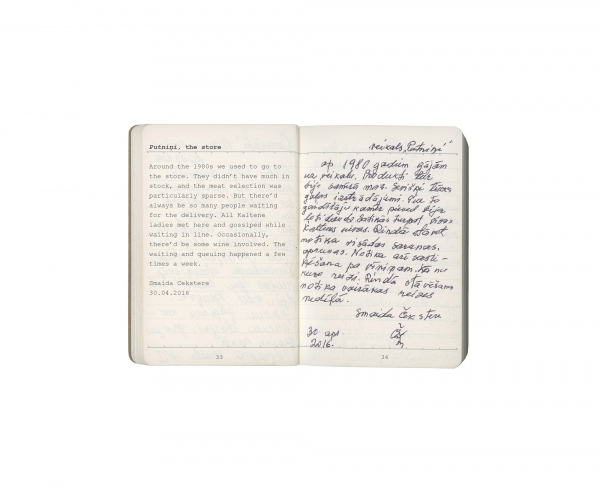 Putniņi, the store
Around the 1980s we used to go to
the store. They didn't have much in
stock, and the meat selection was
particularly sparse. But there'd
always be so many people waiting
for the delivery. All Kaltene
ladies met here and gossiped while
waiting in line. Occasionally,
there'd be some wine involved. The
waiting and queuing happened a few
times a week.
Smaida Cekstere
30.04.2016
33
veikals „Putniņi”
ap. 1980 gadiem gājām
uz veikalu. Produkti tur
bija samērā maz.
gaļas izstrādājumi.
bija
ļoti daudz
Kaltenes sievas. Rindā stāvot
notika visādas sarunas,
aprunas. Notika arī
pa vīniņam
reizi. Rindā stāvēšana
notika vairākas reizes
nedēļā.
Smaida Čekstere
30 apr.
2016.
34